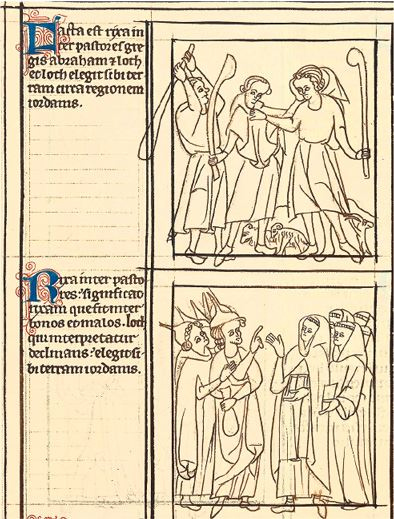 Facta est rixa in
ter pastores gre
gis abraham ⁊ loth
et loth elegit sibi ter
ram circa regionem
iordanis.
Rixa inter pasto
res: significat
rixam que fit inter
bonos et malos. loth
qui interpretatur
declinans: elegit si
bi terram iordanis.